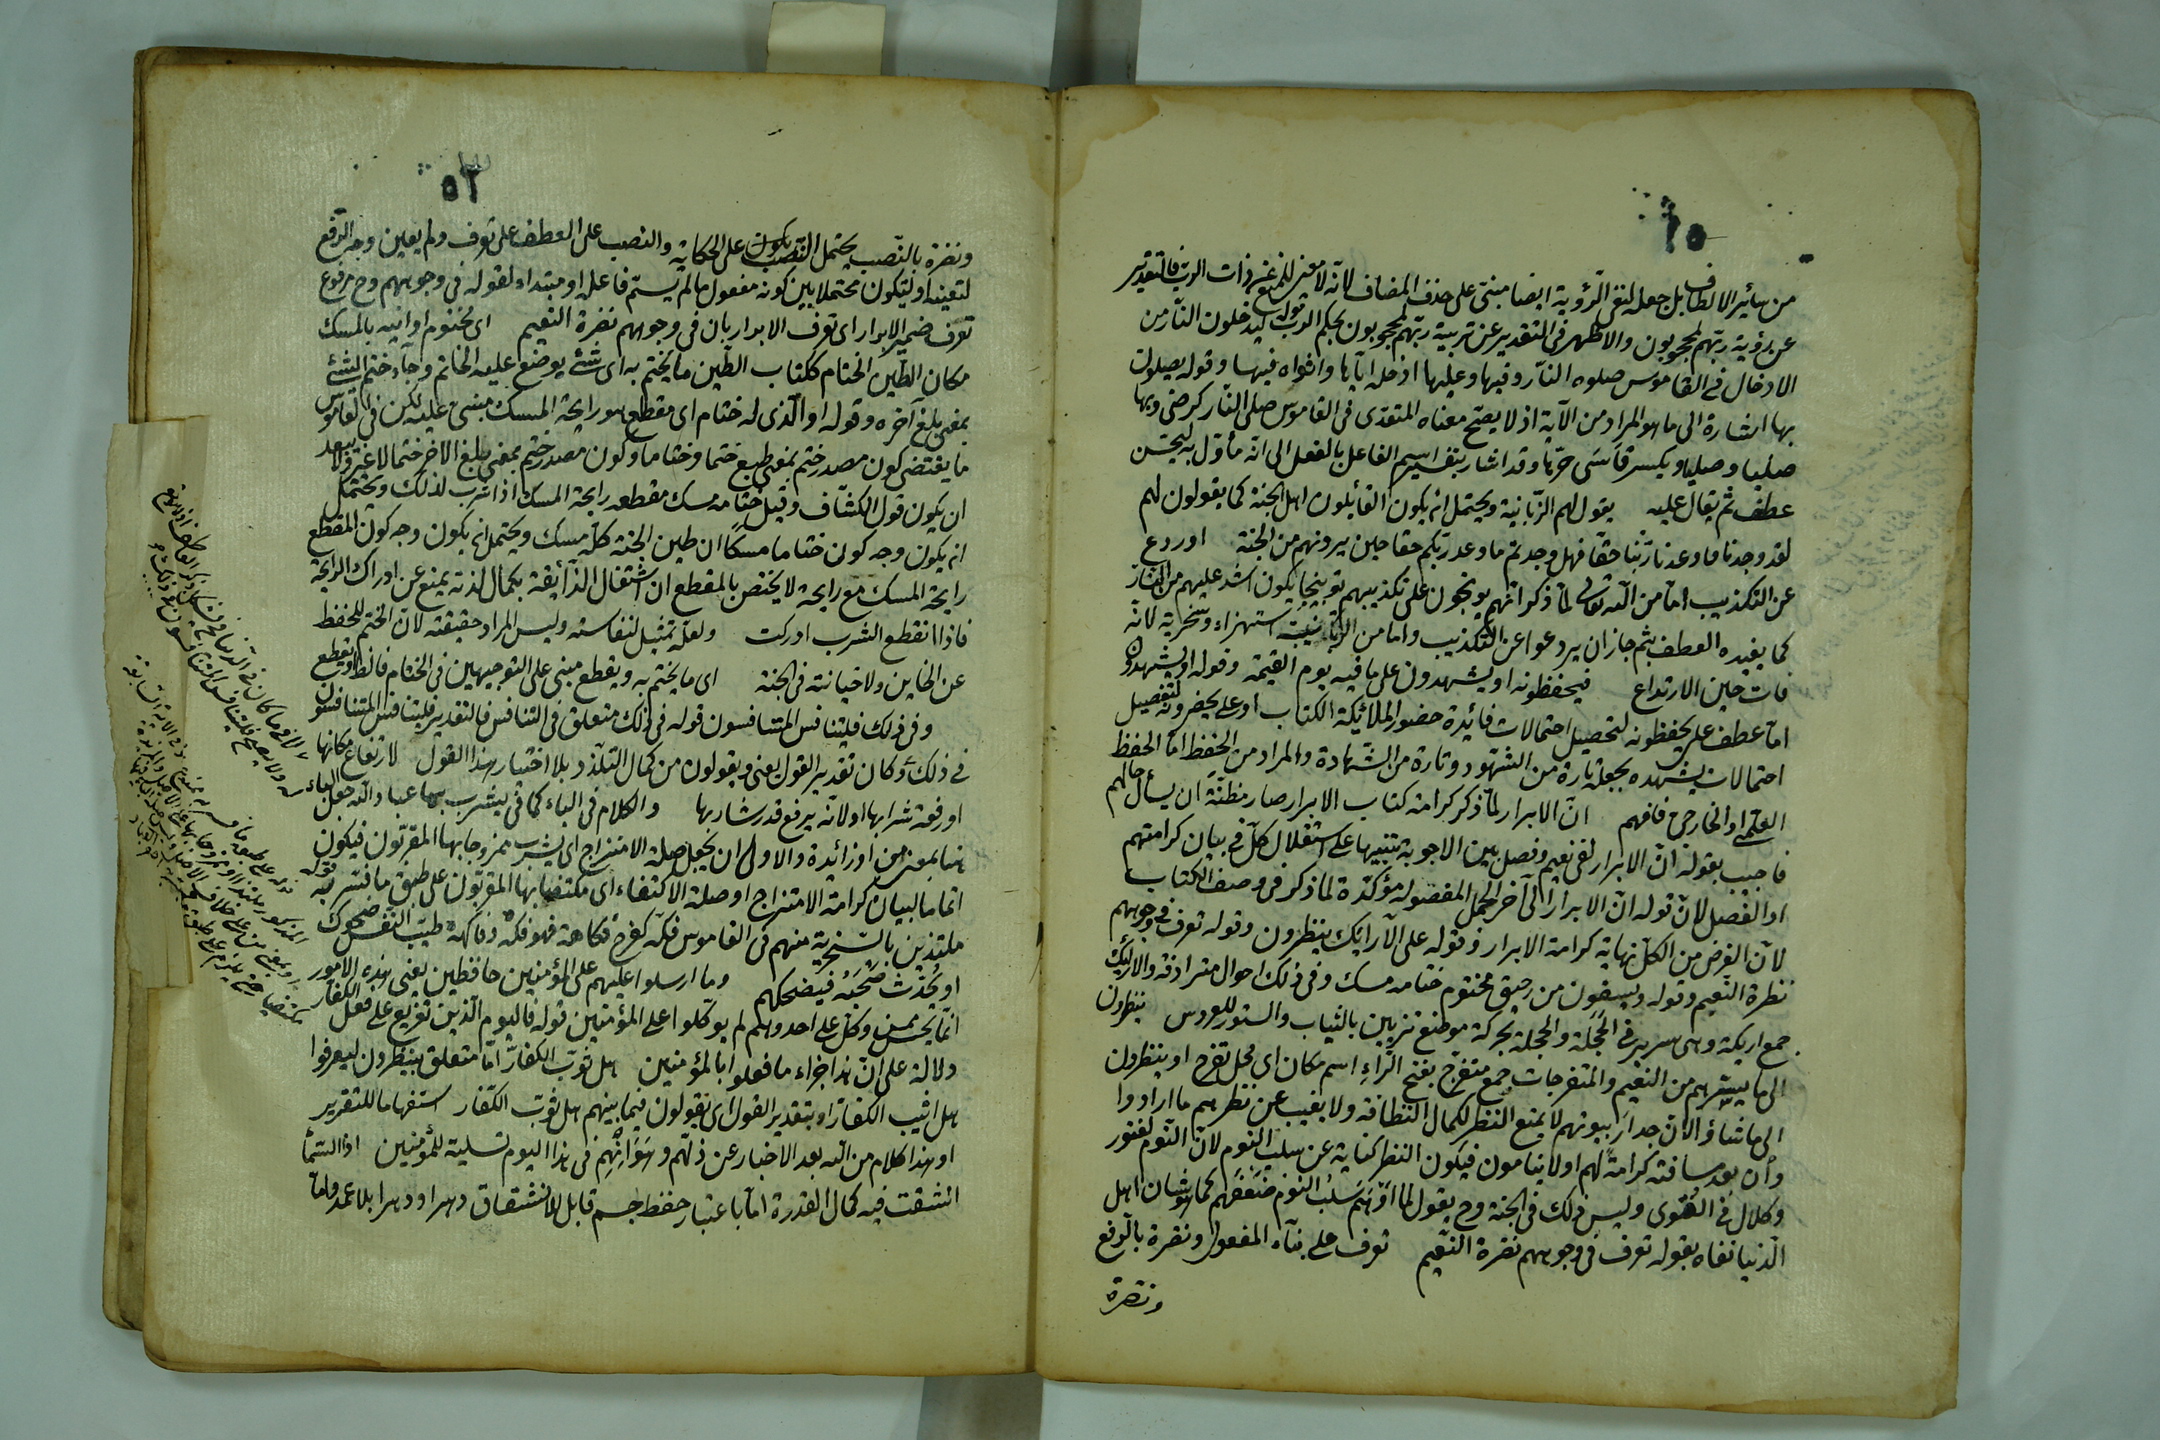 من سائر الالطاف بل جعله لنفى الرؤية ايضا مبنى على حذف المضاف لانه لا معنى للمنع عن ذات الرب فالتقدير
عن رؤية ربهم لمحجوبون والاظهر فى التقدير عن تربية ربهم لمحجوبون بحكم الرب قوله ليدخلون النار من
الادخال فى القاموس صلوه النار وفيها وعليها ادخله اياها واثواه فيها وقوله يصلون
بها اشارة الى ما هو المراد من الآية اذ لا يصح معناه المتعدى فى القاموس صلى النار كرضى وبها
صليا وصليا ويكسر قاسى حرها وقد اشار بتفسير اسم الفاعل بالفعل الى انه مأول به ليحسن
عطف ثم يقال عليه يقول لهم الزبانية ويحتمل ان يكون القائلون اهل الجنة كما يقولون لهم
لقد وجدنا ما وعدنا ربنا حقا فهل وجدتم ما وعد ربكم حقا حين يرونهم من الجنة او ردع
عن التكذيب اما من الله تعالى لما ذكر انهم يوبخون على تكذيبهم توبيخا يكون اشد عليهم من النار
كما يفيده العطف بثم جاز ان يردعوا عن التكذيب واما من الزبانية استهزاء وسخرية لانه
فات حين الارتداع فيحفظونه او يشهدون على ما فيه يوم القيمة وقوله او يشهدون
اما عطف على يحفظونه لتحصيل احتمالات فائدة حضور الملائكة الكتاب او على يحضرونه لتفصيل
احتمالات يشهده بجعله تارة من الشهود وتارة من الشهادة والمراد من الحفظ اما الحفظ
العلمى او الخارجى فافهم ان الابرار لما ذكر كرامة كتاب الابرار صار مظنة ان يسأل حالهم
فاجيب بقوله ان الابرار لفى نعيم وفصل بين الاجوبة تنبيها على استقلال كل فى بيان كرامتهم
او الفصل لان قوله ان الابرار الى آخر الجمل المفصولة مؤكدة لما ذكر فى وصف الكتاب
لان الغرض من الكل نهاية كرامة الابرار وقوله على الارائك ينظرون وقوله تعرف فى وجوههم
نظرة النعيم وقوله ويسقون من رحيق مختوم ختامه مسك وفى ذلك احوال مترادفة والارائك
جمع اريكة وهى سرير فى الحجلة والحجلة محركة موضع تزين بالثياب والستور للعروس ينظرون
الى ما يسرهم من النعيم والمتفرجات جمع متفرج بفتح الراء اسم مكان اى محل تفرج او ينظرون
الى ما شاؤا لان جدار بيوتهم لا يمنع النظر لكمال النظافة ولا يغيب عن نظرهم ما ارادوا
وان بعد مسافته كرامة لهم او لا ينامون فيكون النظر كناية عن سلب النوم لان النوم لفتور
وكلال فى القوى وليس ذلك فى الجنة وح يقول لما اوهم سلب النوم ضعفهم كما هو شان اهل
الدنيا نفاه بقوله تعرف فى وجوههم نضرة النعيم تعرف على بناء المفعول ونضرة بالرفع
ونضرة
٥٢
ونضرة بالنصب يحتمل النصب يكون على الحكاية والنصب على العطف على تعرف ولم يعين وجه الرفع
لتعينه او ليكون محتملا بين كونه مفعول ما لم يسم فاعله او مبتداء لقوله فى وجوههم وح مرفوع
تعرف ضمير الابرار اى تعرف الابرار بان فى وجوههم نضرة النعيم اى مختوم اوانيه بالمسك
مكان الطين الختام ككتاب الطين ما يختم به اى شئ يوضع عليه الخاتم وجاء ختم الشئ
بمعنى بلغ آخره وقوله او الذى له ختام اى مقطع هو رايحة المسك مبنى عليه لكن فى القاموس
ما يقتضى كون مصدر ختم بمعنى طبع ختما وختاما وكون مصدر ختم بمعنى بلغ الاخر ختما لا غير فلا يبعد
ان يكون قول الكشاف وقيل ختامه مسك مقطعه رايحة المسك اذا شرب لذلك ويحتمل
ان يكون وجه كون ختاما مسكا ان طين الجنة كله مسك ويحتمل ان يكون وجه كون المقطع
رايحة المسك مع رايحة لا يختص بالمقطع ان اشتغال الذايقة بكمال لذته يمنع عن ادراك الرايحة
فاذا انقطع الشرب ادركت ولعله تمثيل لنفاسته وليس المراد حقيقته لان الختم للحفظ
عن الخاين ولا خيانة فى الجنة اى ما يختم به ويقطع مبنى على التوجيهين فى الختام فالظ او يقطع
وفى ذلك فليتنافس المتنافسون قوله فى ذلك متعلق فى التنافس فالتقدير فليتنافس المتنافسون
فى ذلك وكان تقدير القول يعنى ويقولون من كمال التلذذ بلا اختيار هذا القول لارتفاع مكانها
او رفعة شرابها او لانه يرفع قدر شاربها والكلام فى الباء كما فى يشرب بها عباد الله جعل الباء
هنا بمعنى من او زائدة والاولى ان يجعل صلة الامتزاج اى يشرب ممزوجا بها المقربون فيكون
اتماما لبيان كرامة الامتزاج او صلة الاكتفاء اى مكتفيا بها المقربون على طبق ما فسر به قوله
ملتذين بالسخرية منهم فى القاموس فكه كفرح فكاهة فهو فكه وفاكه طيب النفس ضحوك
او يحدث صحبه فيضحكهم وما ارسلوا عليهم على المؤمنين حافظين يعنى هذه الامور
انما يحسن ممن وكل على احد وهم لم يوكلوا على المؤمنين قوله فاليوم الذين تفريع على فعل الكفار
دلالة على ان هذا جزاء ما فعلوا بالمؤمنين هل ثوب الكفار اما متعلق بينظرون ليعرفوا
هل اثيب الكفار او بتقدير القول اى يقولون فيما بينهم هل ثوب الكفار استفهاما للتقرير
او هذا كلام من الله بعد الاخبار عن ذلهم وهوانهم فى هذا اليوم تسلية للمؤمنين اذا السماء
انشقت فيه كمال القدرة اما باعتبار حفظ جسم قابل للانشقاق دهرا ودهرا بلا عمد واما